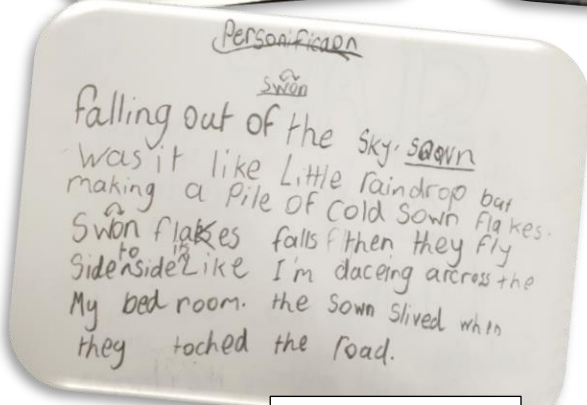 Personificaon
swon
falling out of the sky. soown
was it like Little raindrop but
making a Pile of cold Sown flakes.
Swon flakes falls then they fly
Side to Side like I'm daceing arcross the
My bed room. the Sown Slived when
they toched the road.